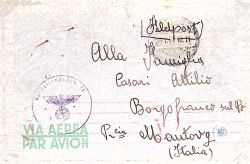 (Feldpost)
Alla Famiglia
Casari Attilio
Borgofranco sul Po
Mantova
(Italia)
VIA AEREA
PAR AVION